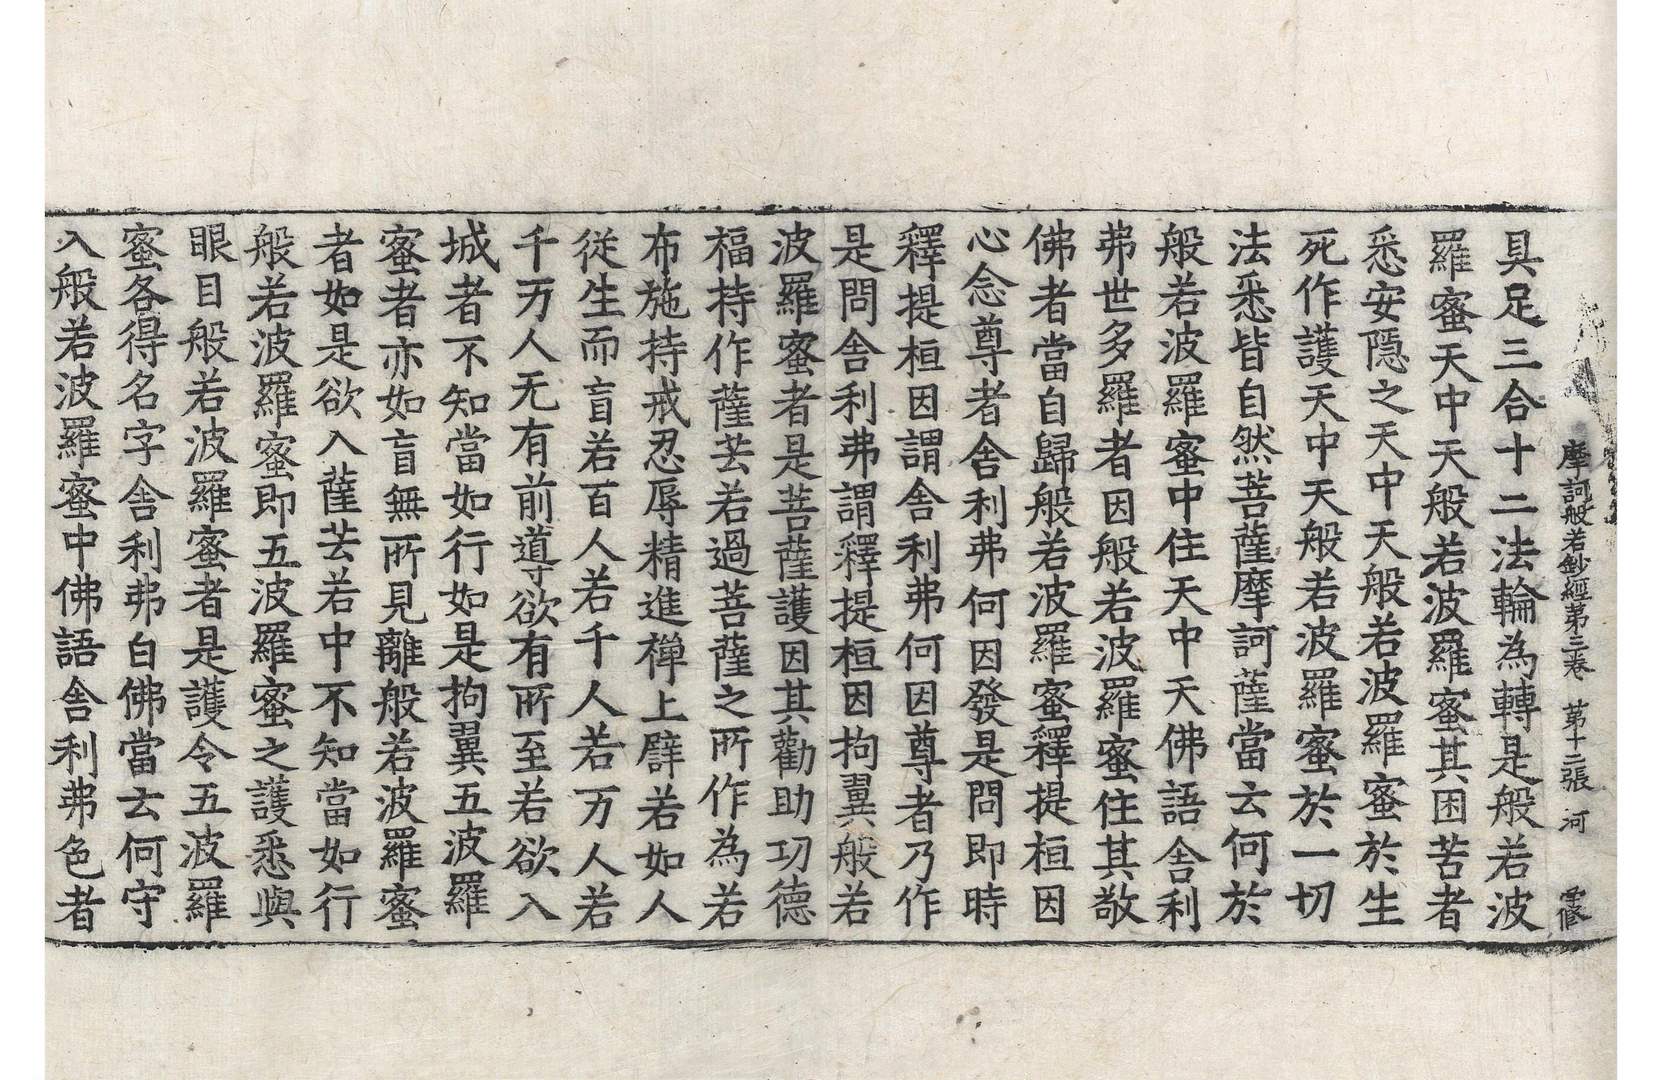 摩訶般若鈔經第三卷　第十二張　河
具足三合十二法輪為轉是般若波
羅蜜天中天般若波羅蜜其困苦者
悉安隱之天中天般若波羅蜜於生
死作護天中天般若波羅蜜於一切
法悉皆自然菩薩摩訶薩當云何於
般若波羅蜜中住天中天佛語舍利
弗世多羅者因般若波羅蜜住其敬
佛者當自歸般若波羅蜜釋提桓因
心念尊者舍利弗何因發是問即時
釋提桓因謂舍利弗何因尊者乃作
是問舍利弗謂釋提桓因拘翼般若
波羅蜜者是菩薩護因其勸助功德
福持作薩芸若過菩薩之所作為若
布施持戒忍辱精進禪上辟若如人
從生而盲若百人若千人若万人若
千万人无有前導欲有所至若欲入
城者不知當如行如是拘翼五波羅
蜜者亦如盲無所見離般若波羅蜜
者如是欲入薩芸若中不知當如行
般若波羅蜜即五波羅蜜之護悉與
眼目般若波羅蜜者是護令五波羅
蜜各得名字舍利弗白佛當云何守
入般若波羅蜜中佛語舍利弗色者